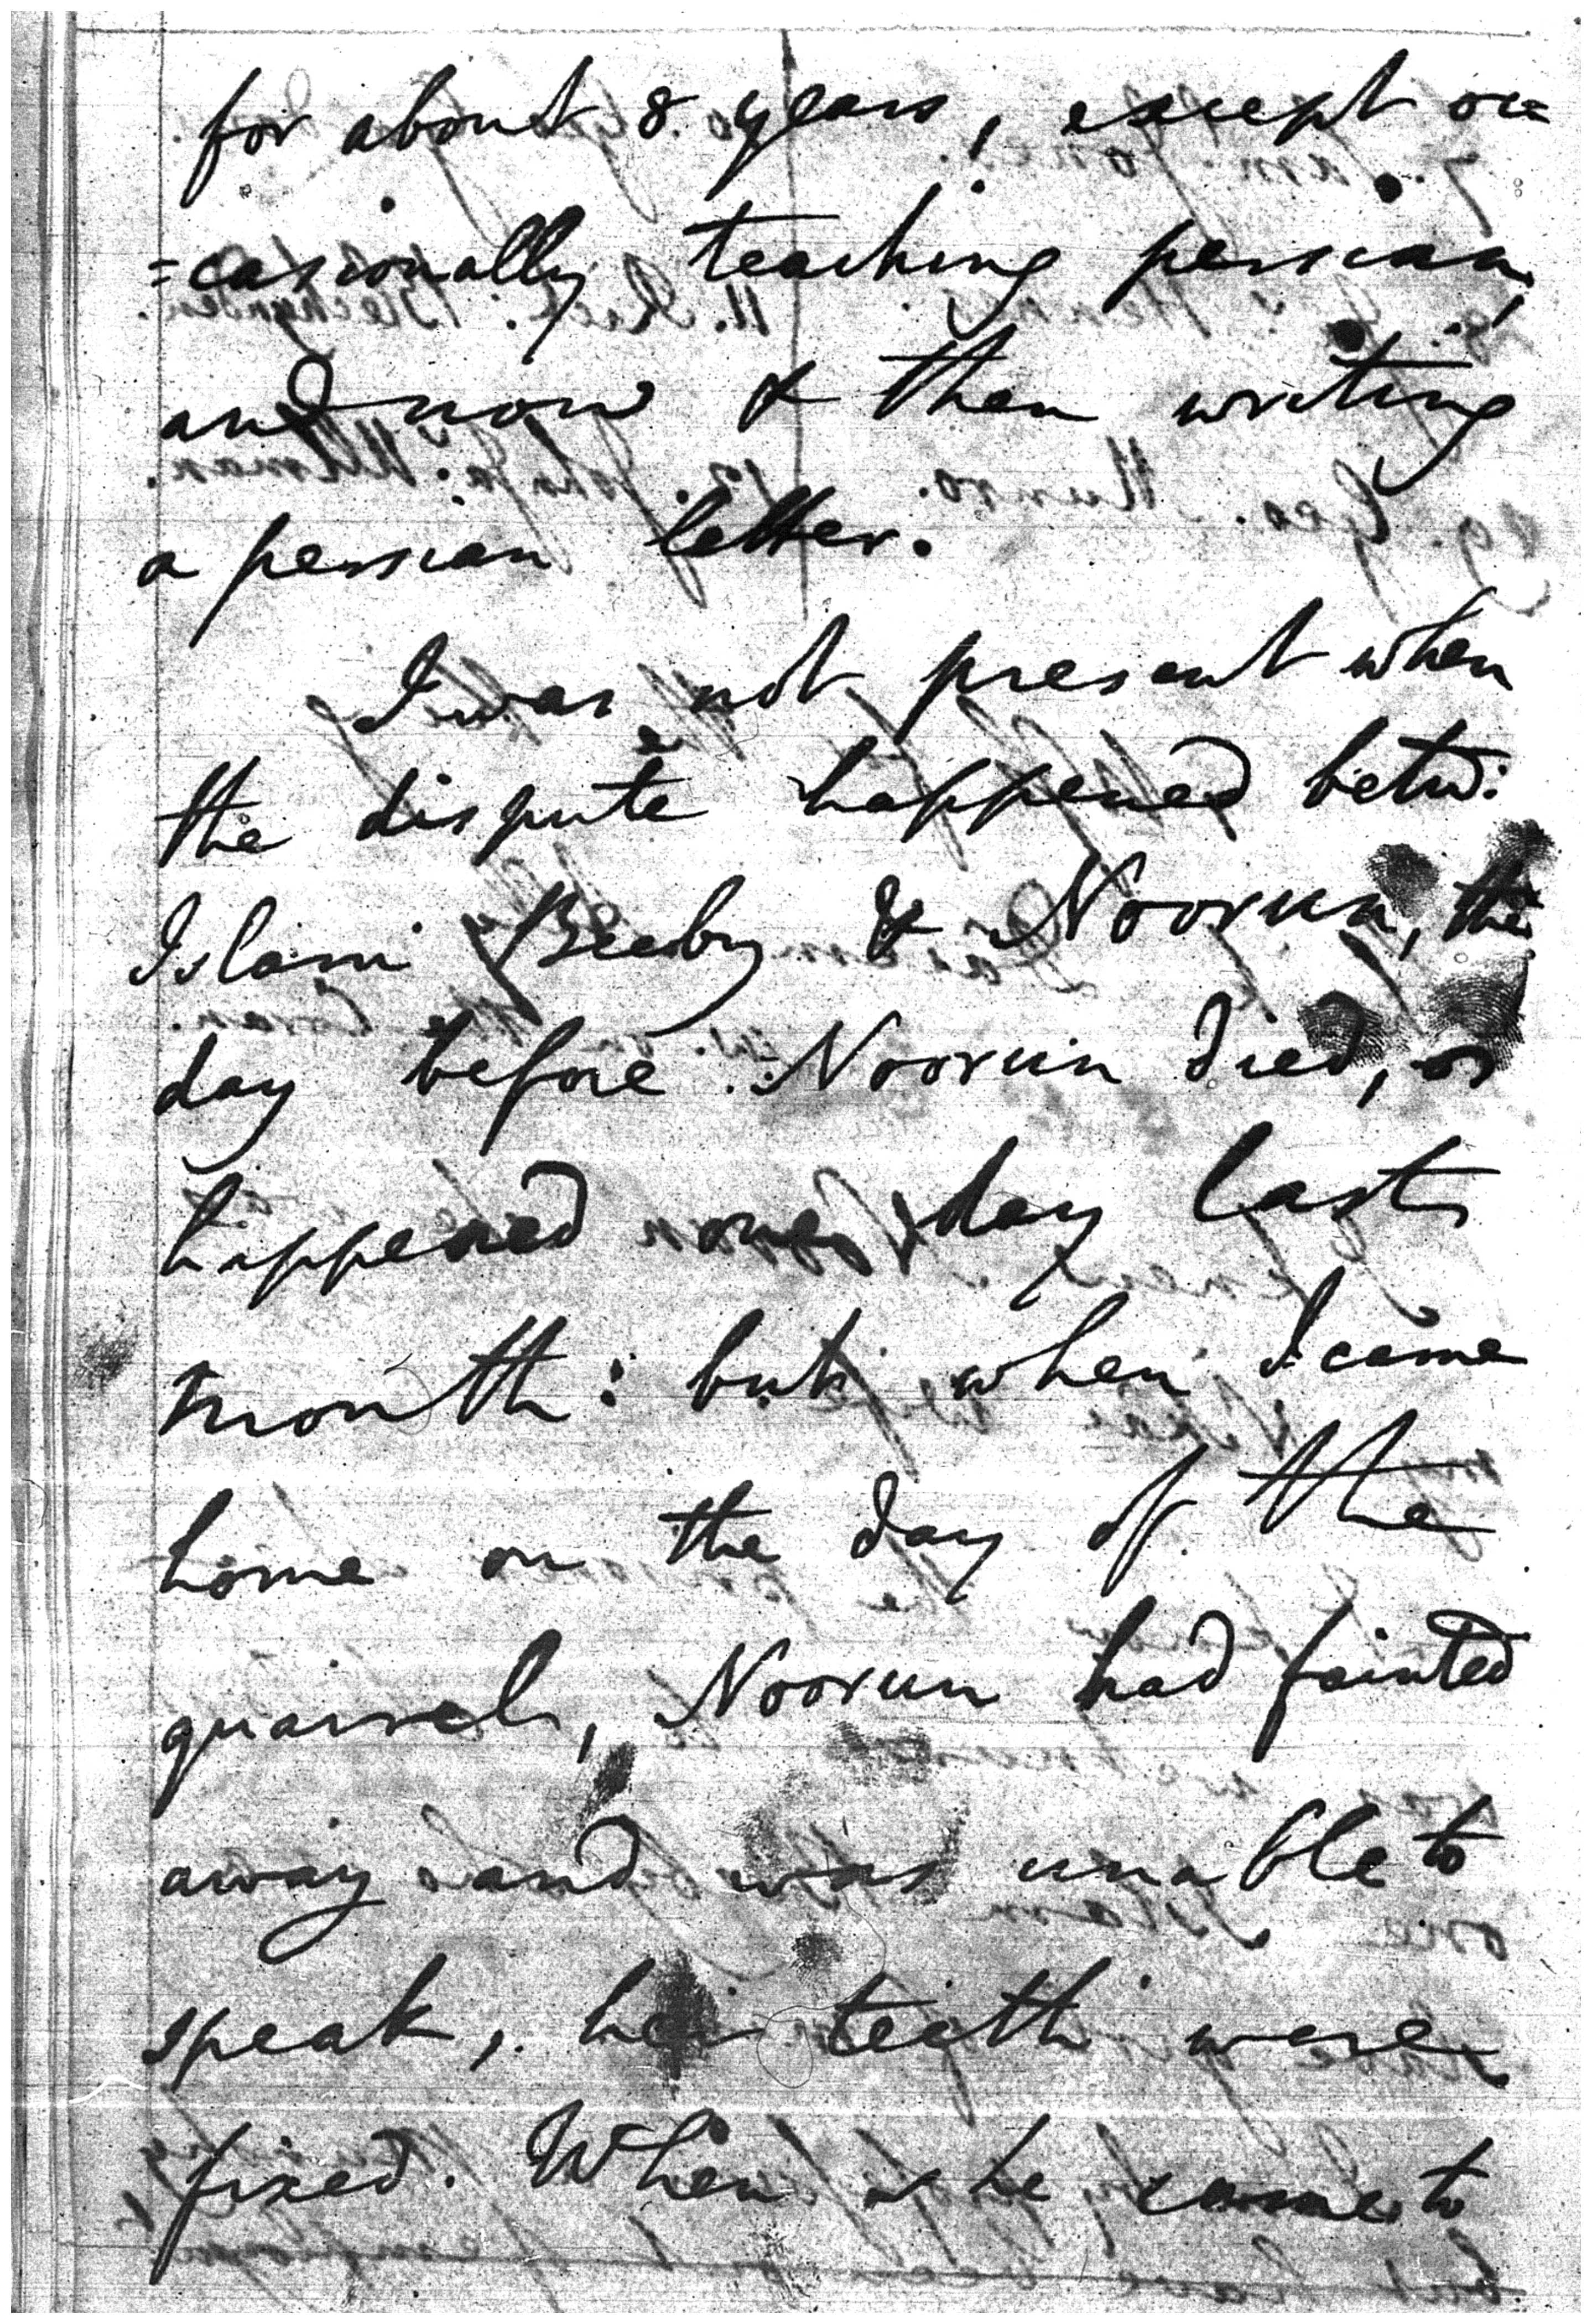 for about 8 years, except oc=
=casionally teaching persian,
and now & then writing
a persian letter.
I was not present when
the dispute happened betw:
Islam Beeby & Noorun, the
day before Noorun died, or
happened one day last
month: but when I came
home on the day of the
quarrel, Noorun had fainted
away and was unable to
speak, her teeth were
fixed. When she came to